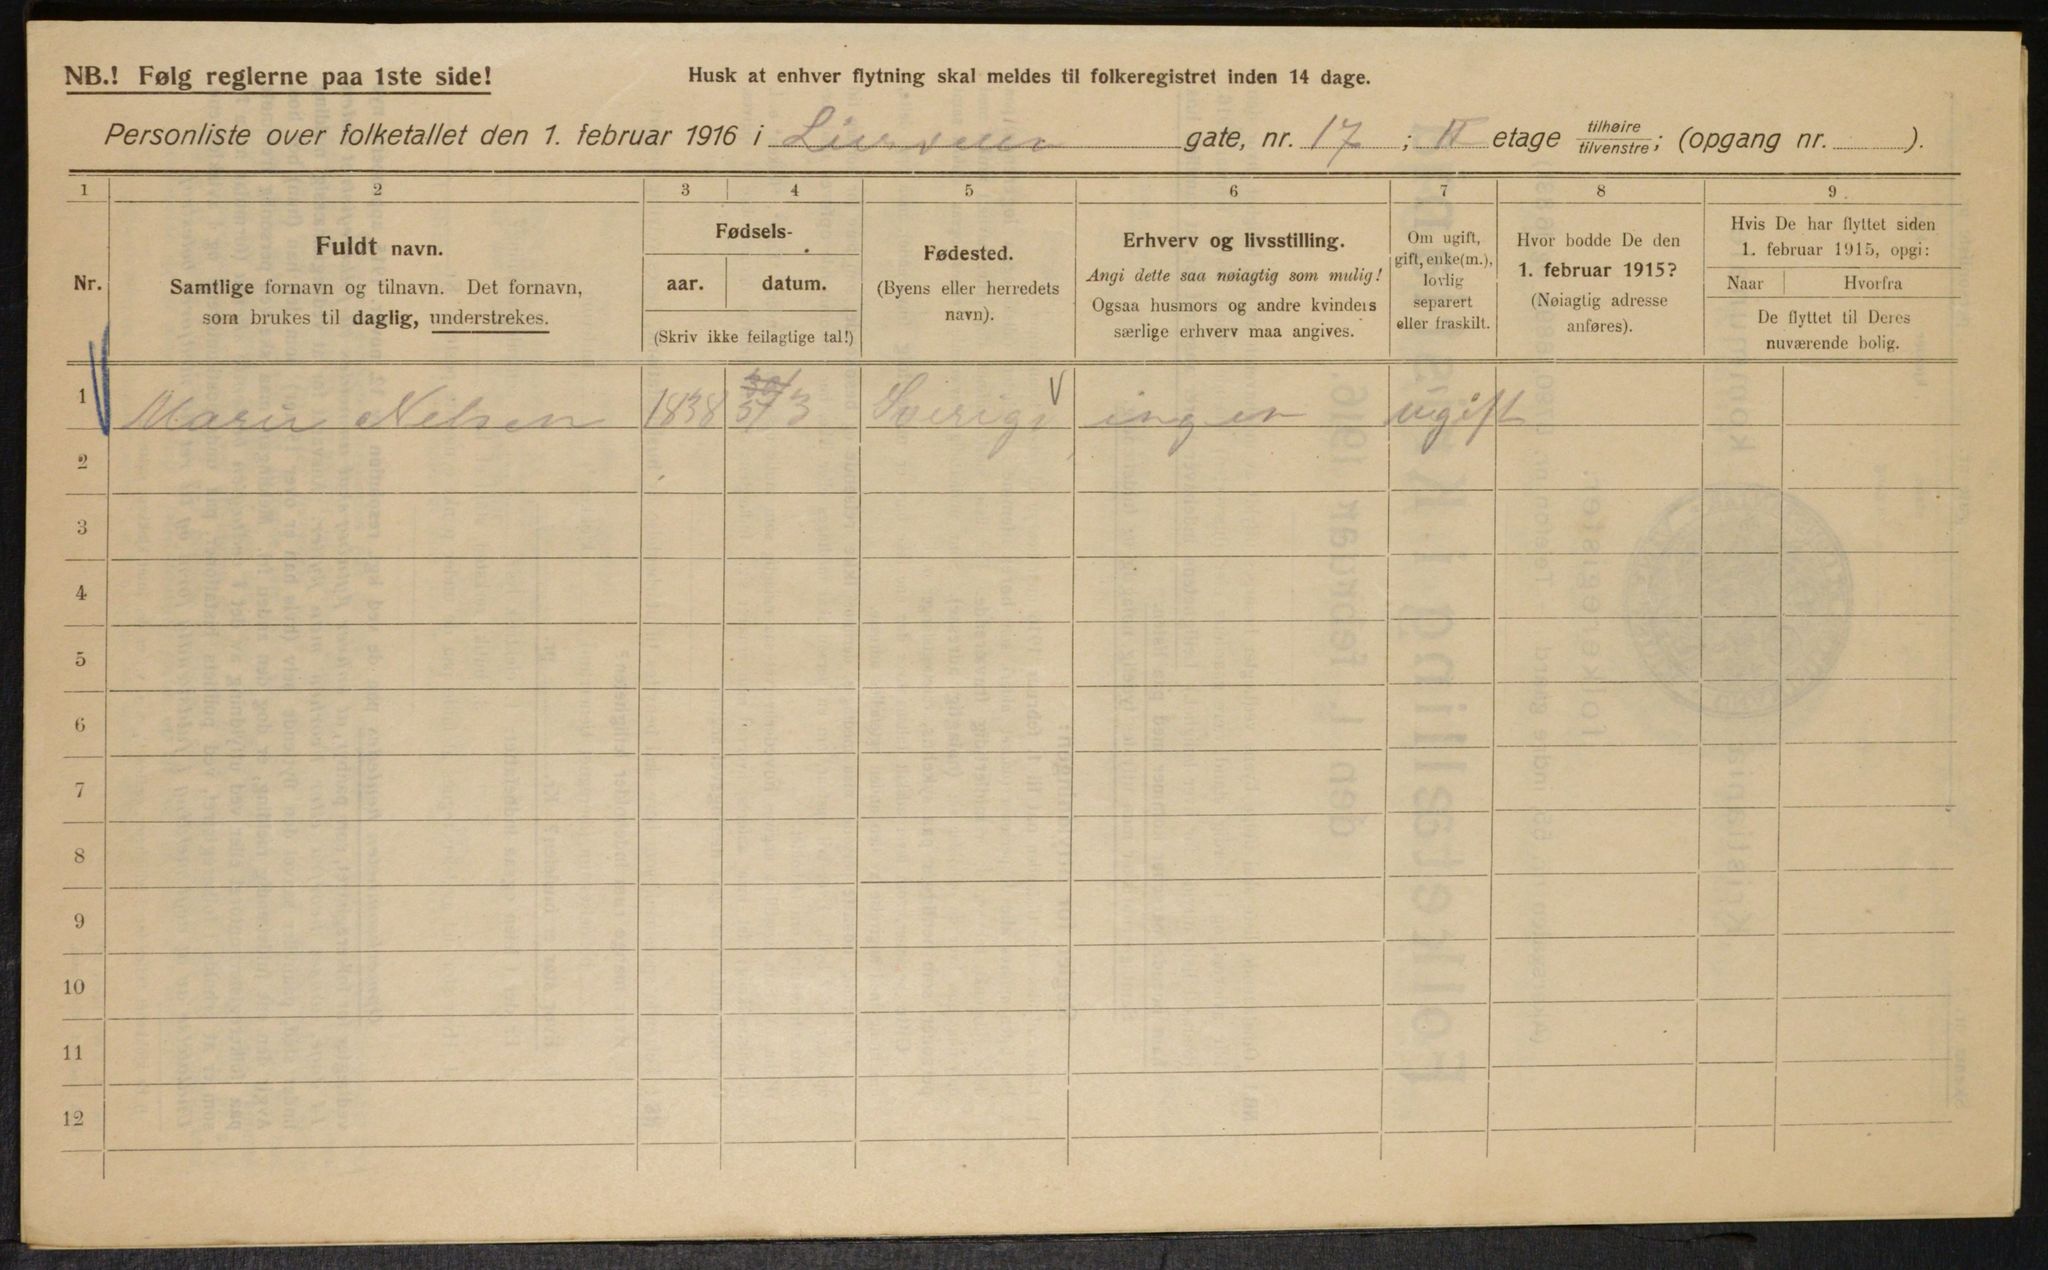 NB.! Følg reglerne paa 1ste side!
Husk at enhver flytning skal meldes til folkeregistret inden 14 dage.
Personliste over folketallet den 1. februar 1916 i gate, nr. 17 ; II etage tilhøire tilvenstre; (opgang nr. ).
1 2 3 4 5 6 7 8 9
Nr.
Fuldt navn.
Samtlige fornavn og tilnavn. Det fornavn,
som brukes til daglig, understrekes.
Fødsels-
aar. datum.
(Skriv ikke feilagtige tal!)
Fødested.
(Byens eller herredets
navn).
Erhverv og livsstilling.
Angi dette saa nøiagtig som mulig!
Ogsaa husmors og andre kvinders
særlige erhverv maa angives.
Om ugift,
gift, enke(m.),
lovlig
separert
eller fraskilt.
Hvor bodde De den
1. februar 1915?
(Nøiagtig adresse
anføres).
Hvis De har flyttet siden
1. februar 1915, opgi:
Naar Hvorfra
De flyttet til Deres
nuværende bolig.
1 Marie Nelsen 1838 Sverige ingen ugift
2
3
4
5
6
7
8
9
10
11
12